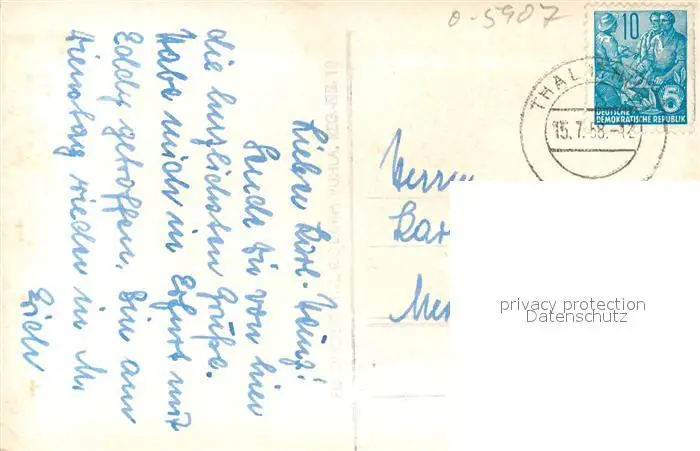 o-5907
10
DEUTSCHE
DEMOKRATISCHE REPUBLIK
5
THAL
15.7.58.-12
Lieber Karl-Heinz!
Sende dir von hier
die herzlichsten Grüße.
Habe mich in Erfurt mit
Eddy getroffen. Bin am
Dienstag wieder in M.
Erich
Herrn
Kar
Me
privacy protection
Datenschutz